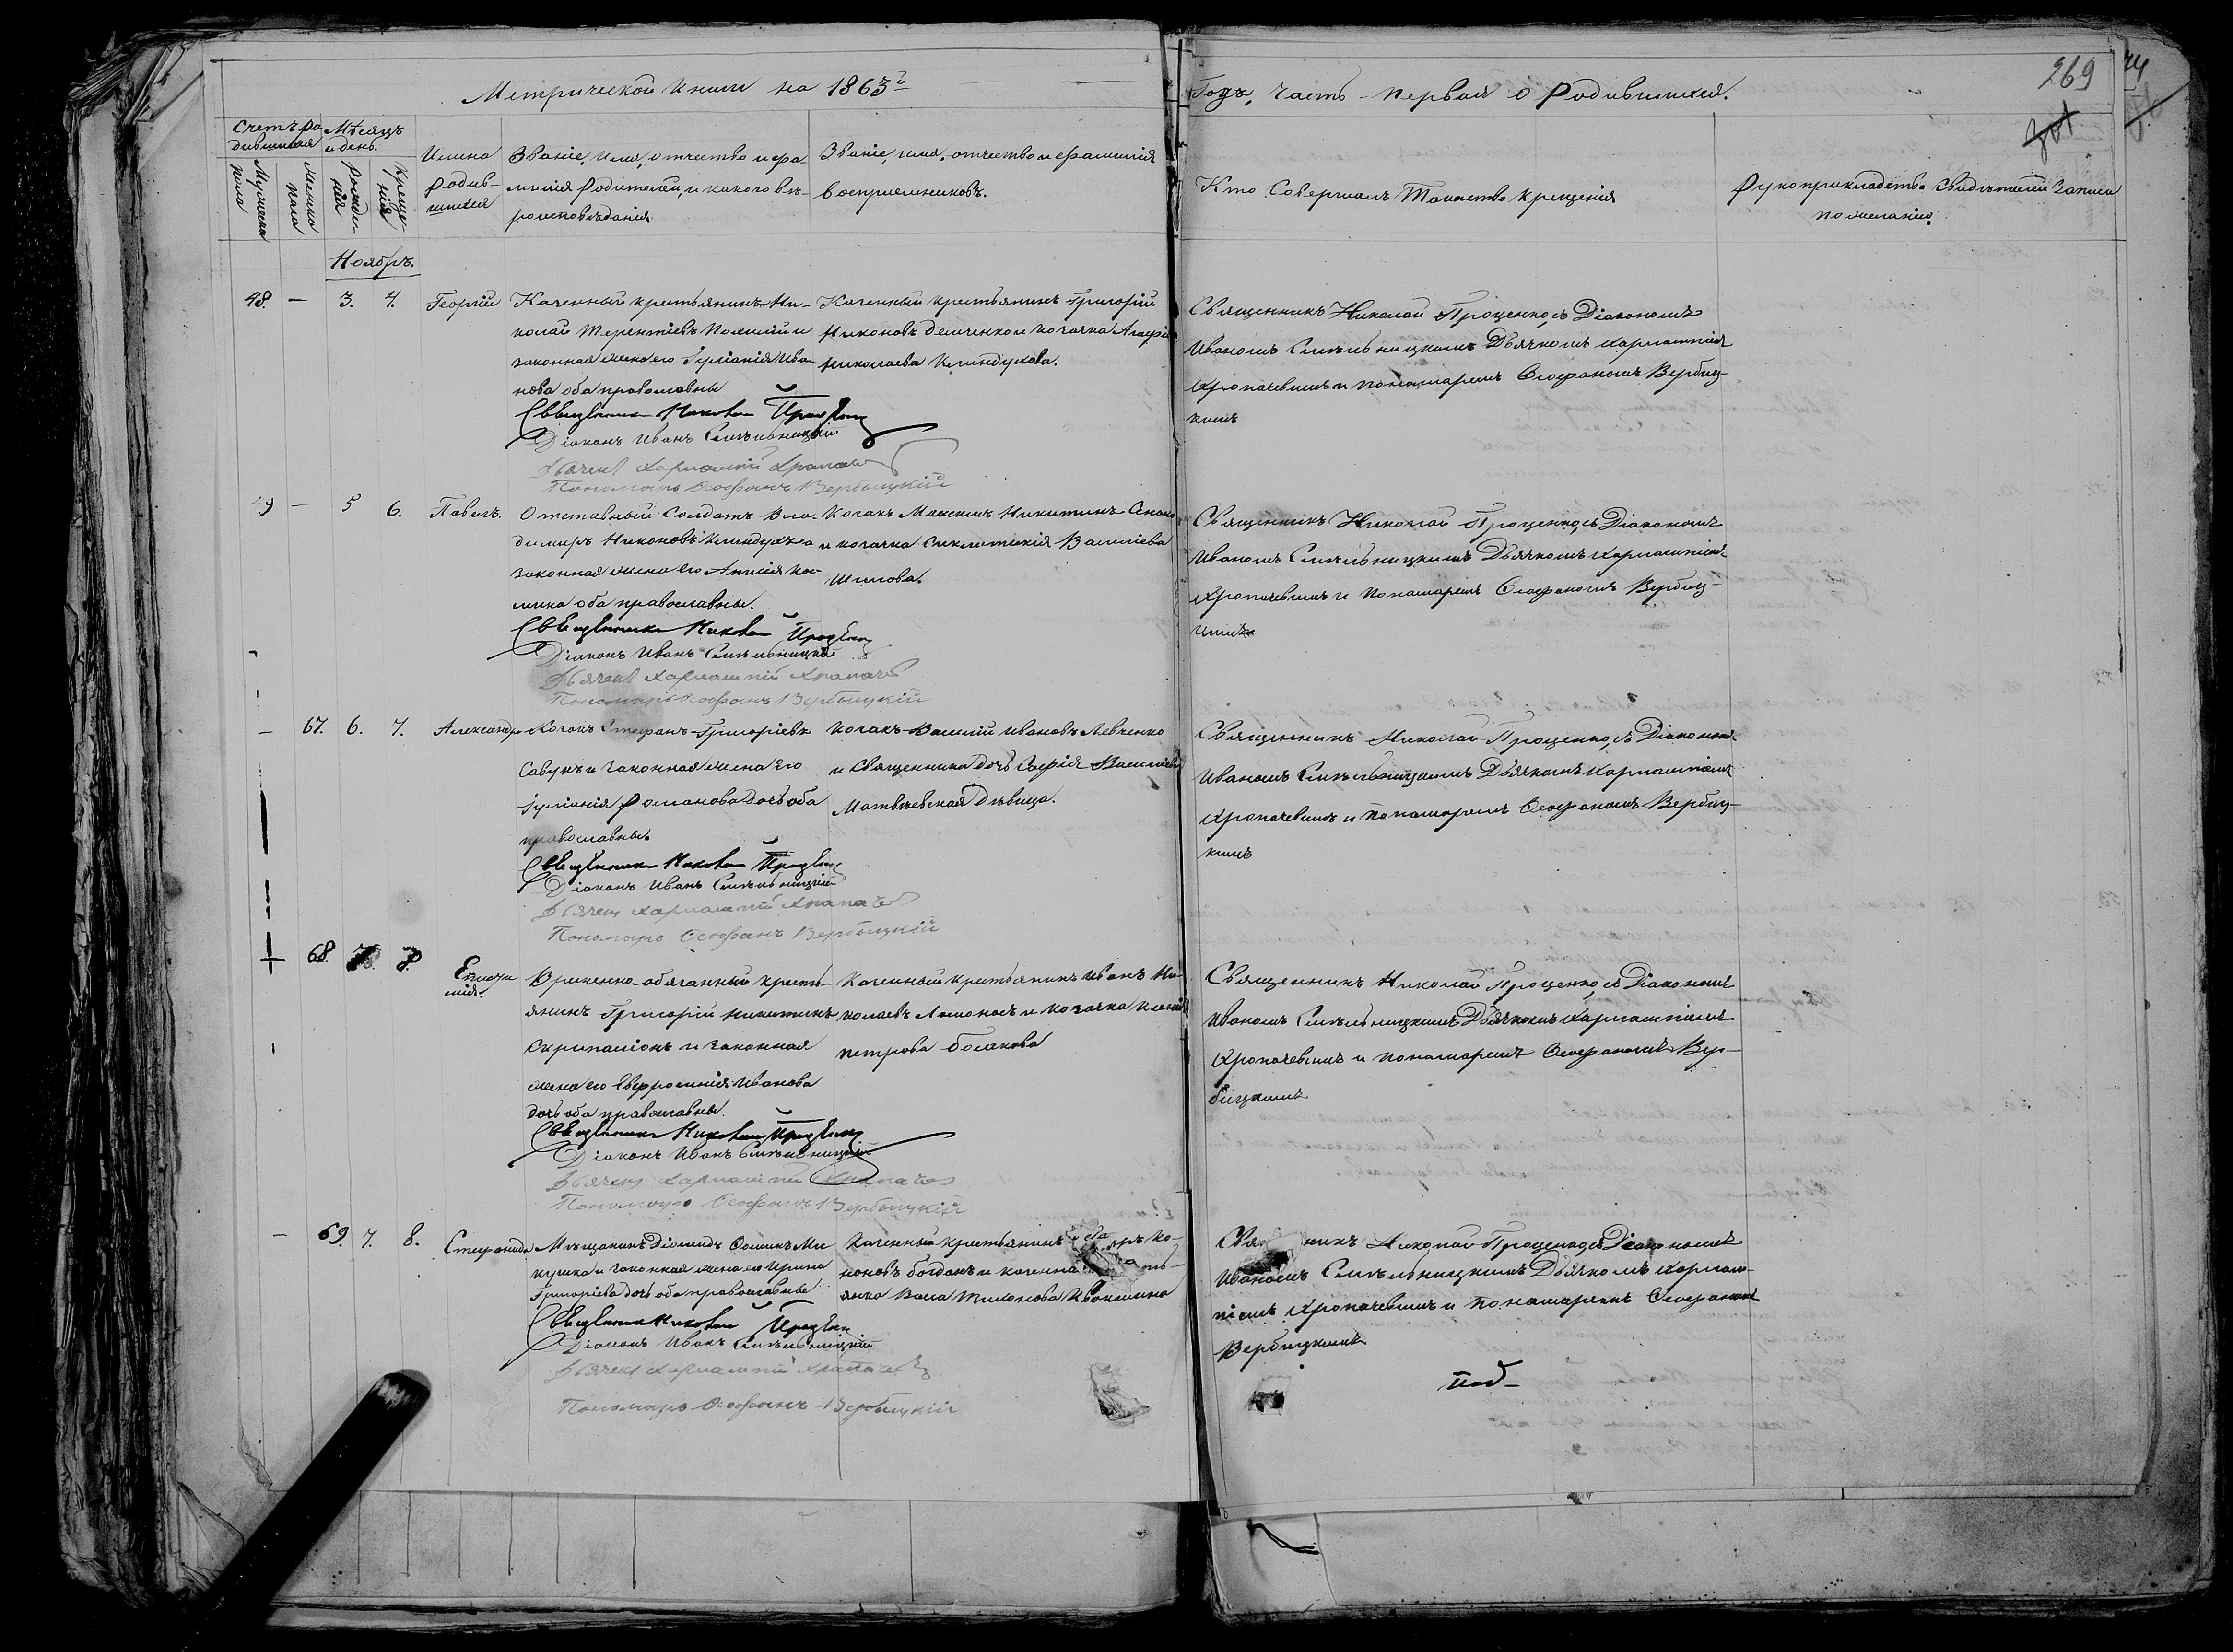 Метрической книги на 1863й
Годъ, часть первая о родившихся.
269
Счетъ ро
дившихся
Мѣсяцъ
и день.
Мужеска
пола
Женска
пола
Рожде-
нія
Креще-
нія
Имена
родив-
шихся
Званіе, имя, отчество и фа-
милія родителей, и какого вѣ-
роисповѣданія
Званіе, имя, отчество и фамилія
воспріемниковъ.
Кто совершалъ Таинство крещенія
Рукоприкладство свидѣтелей записи
по желанію.
Ноябрь.
48. — 3. 4. Георгій
Казенный крестьянинъ Ни-
колай Терентіевъ и
законная жена его Іуліанія Ива-
нова оба православны
Священникъ Николай Проценко
Діаконъ Иванъ Синѣльницкій
Дьячекъ Харлампій Хропачев
Пономарь Ѳеофанъ Вербицкій
Казенный крестьянинъ Григорій
Никоновъ Демченко и козачка Агафія
Николаева Клиндухова.
Священникъ Николай Проценко, съ Діакономъ
Иваномъ Синѣльницкимъ Дьячкомъ Харлампіемъ
Хропачевимъ и пономаремъ Ѳеофаномъ Вербиц-
кимъ
49 — 5 6. Павелъ.
Отставный Солдатъ Вла-
димиръ Никоновъ Клиндухъ
законная жена его
оба православны.
Священникъ Николай Проценко
Діаконъ Иванъ Синѣльницкій
Дьячекъ Харлампій Хропачев
Пономарь Ѳеофанъ Вербицкій
Козакъ Максимъ Никитинъ
и козачка Синклитикія Василіева
Священникъ Николай Проценко, съ Діакономъ
Иваномъ Синѣльницкимъ Дьячкомъ Харлампіемъ
Хропачевимъ и пономаремъ Ѳеофаномъ Вербиц-
кимъ
— 67. 6. 7. Александра
Козакъ Стефанъ Григоріевъ
Савунъ и законная жена его
Іуліанія Романова дочь оба
православны.
Священникъ Николай Проценко
Діаконъ Иванъ Синѣльницкій
Дьячекъ Харлампій Хропачев
Пономарь Ѳеофанъ Вербицкій
Козакъ Василій Ивановъ Левченко
и Священника дочь Софія Василіева
Матвѣевская дѣвица.
Священникъ Николай Проценко, съ Діакономъ
Иваномъ Синѣльницкимъ Дьячкомъ Харлампіемъ
Хропачевимъ и пономаремъ Ѳеофаномъ Вербиц-
кимъ
68. 8.
Временно-обязанный кресть-
янинъ Григорій Никитинъ
и законная
жена его Евфросинія Иванова
дочь оба православны.
Священникъ Николай Проценко
Діаконъ Иванъ Синѣльницкій
Дьячекъ Харлампій Хропачев
Пономарь Ѳеофанъ Вербицкій
Казенный крестьянинъ Иванъ Ни-
колаевъ и козачка
Петрова
Священникъ Николай Проценко, съ Діакономъ
Иваномъ Синѣльницкимъ Дьячкомъ Харлампіемъ
Хропачевимъ и пономаремъ Ѳеофаномъ Вер-
бицкимъ
— 69. 7. 8. Стефанида
Мѣщанинъ Діомидъ Ѳоминъ Ми
и законная жена его Ирина
Григоріева дочь оба православные
Священникъ Николай Проценко
Діаконъ Иванъ Синѣльницкій
Дьячекъ Харлампій Хропачев
Пономарь Ѳеофанъ Вербицкій
Казенный крестьянинъ
Богданъ и казенна
янка Васа Тихонова
Николай Проценко, съ Діакономъ
Иваномъ Синѣльницкимъ Дьячкомъ Харлам-
піемъ Хропачевимъ и пономаремъ Ѳеофаномъ
Вербицкимъ
Под-